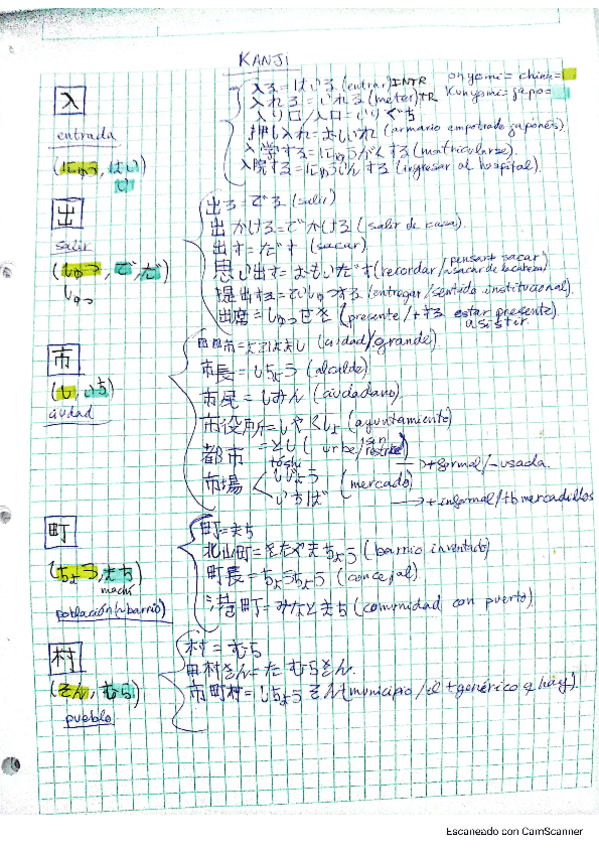 KANJI
onyomi = chinh =
kunyomi = japo =
入
entrada
(にゅう, はい)
い
入る = はいる (entrar) INTR
入れる = いれる (meter) TR
入り口/入口 = いりぐち
押し入れ = おしいれ (armario empotrado japonés).
入学する = にゅうがくする (matricularse).
入院する = にゅういんする (ingresar al hospital).
出
salir
(しゅつ, で, だ)
しゅっ
出る = でる (salir)
出かける = でかける (salir de casa).
出す = だす (sacar)
思い出す = おもいだす (recordar/pensar + sacar → sacar de la cabeza)
提出する = ていしゅつする (entregar/sentido institucional).
出席 = しゅっせき (presente/+する estar presente). asistir.
市
(し, いち)
ciudad
(ciudad/grande)
市長 = しちょう (alcalde)
市民 = しみん (ciudadano)
市役所 = しやくしょ (ayuntamiento)
都市 = とし (urbe/sin
tōshi
→ + formal/- usada.
市場 < しじょう
いちば
(mercado)
→ + informal/tb mercadillos
町
(ちょう, まち)
machi
población (~barrio)
町 = まち
北山町 = きたやまちょう (barrio inventado)
町長 = ちょうちょう (concejal)
港町 = みなとまち (comunidad con puerto)
村
(そん, むら)
pueblo
村 = むら
田村さん = たむらさん.
市町村 = しちょうそん (municipio/el + genérico q hay).
Escaneado con CamScanner